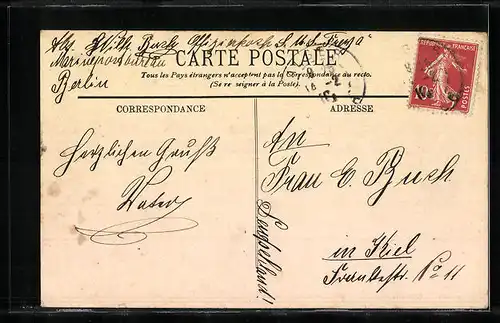 Abs. Wilh. Buch, Offizierkoch S.M.S. "Freya"
Marinepostbureau
Berlin
CARTE POSTALE
Tous les Pays étrangers n'acceptent pas la Correspondance au recto.
(Se renseigner à la Poste).
CORRESPONDANCE
ADRESSE
RÉPUBLIQUE FRANÇAISE
POSTES
Herzlichen Gruß
Vater
An
Frau C. Buch
in Kiel
Frankestr. No 11
Deutschland!